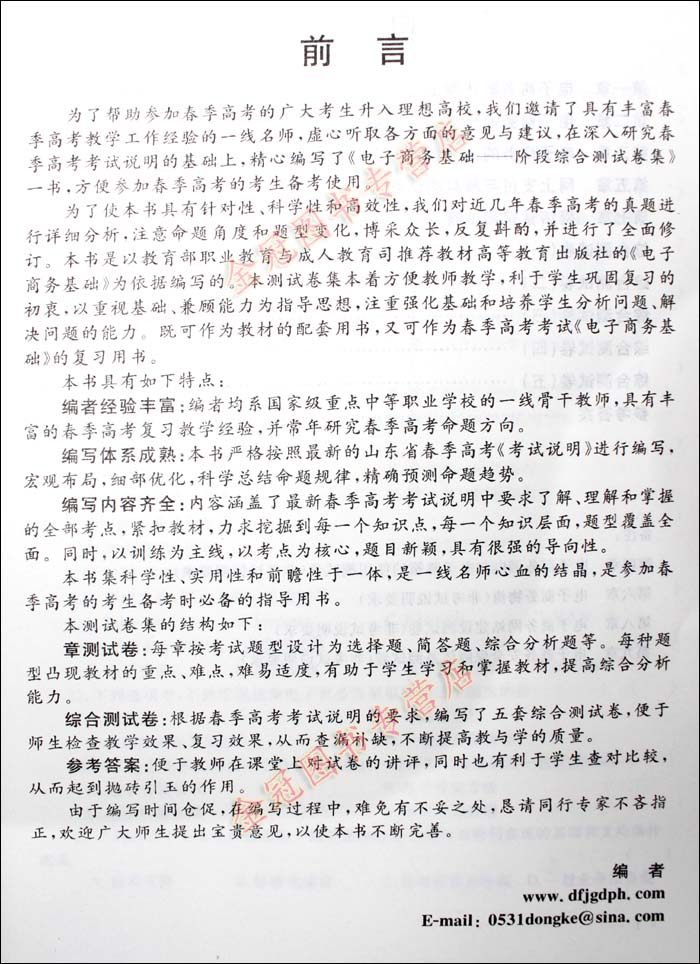 前 言
为了帮助参加春季高考的广大考生升入理想高校，我们邀请了具有丰富春
季高考教学工作经验的一线名师，虚心听取各方面的意见与建议，在深入研究春
季高考考试说明的基础上，精心编写了《电子商务基础——阶段综合测试卷集》
一书，方便参加春季高考的考生备考使用。
为了使本书具有针对性、科学性和高效性，我们对近几年春季高考的真题进
行详细分析，注意命题角度和题型变化，博采众长，反复斟酌，并进行了全面修
订。本书是以教育部职业教育与成人教育司推荐教材高等教育出版社的《电子
商务基础》为依据编写的。本测试卷集本着方便教师教学，利于学生巩固复习的
初衷，以重视基础、兼顾能力为指导思想，注重强化基础和培养学生分析问题、解
决问题的能力。既可作为教材的配套用书，又可作为春季高考考试《电子商务基
础》的复习用书。
本书具有如下特点：
编者经验丰富：编者均系国家级重点中等职业学校的一线骨干教师，具有丰
富的春季高考复习教学经验，并常年研究春季高考命题方向。
编写体系成熟：本书严格按照最新的山东省春季高考《考试说明》进行编写，
宏观布局，细部优化，科学总结命题规律，精确预测命题趋势。
编写内容齐全：内容涵盖了最新春季高考考试说明中要求了解、理解和掌握
的全部考点，紧扣教材，力求挖掘到每一个知识点，每一个知识层面，题型覆盖全
面。同时，以训练为主线，以考点为核心，题目新颖，具有很强的导向性。
本书集科学性、实用性和前瞻性于一体，是一线名师心血的结晶，是参加春
季高考的考生备考时必备的指导用书。
本测试卷集的结构如下：
章测试卷：每章按考试题型设计为选择题、简答题、综合分析题等。每种题
型凸现教材的重点、难点，难易适度，有助于学生学习和掌握教材，提高综合分析
能力。
综合测试卷：根据春季高考考试说明的要求，编写了五套综合测试卷，便于
师生检查教学效果、复习效果，从而查漏补缺，不断提高教与学的质量。
参考答案：便于教师在课堂上对试卷的讲评，同时也有利于学生查对比较，
从而起到抛砖引玉的作用。
由于编写时间仓促，在编写过程中，难免有不妥之处，恳请同行专家不吝指
正，欢迎广大师生提出宝贵意见，以使本书不断完善。
编 者
www.dfjgdph.com
E-mail：0531dongke@sina.com
金冠图书专营店
金冠图书专营店